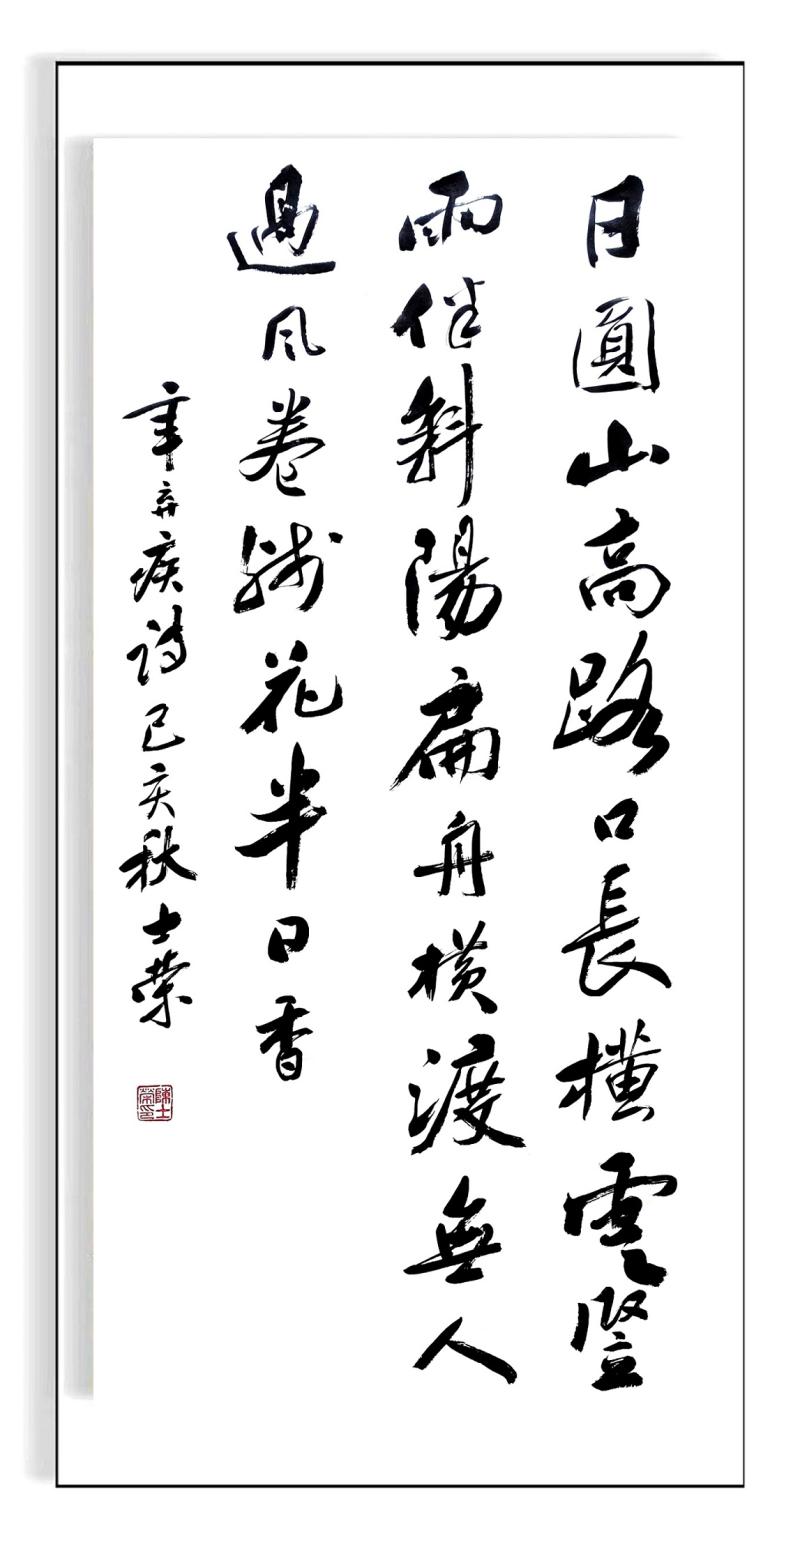 日圓山高路口長橫雲豎
雨伴斜陽扁舟橫渡無人
過風卷殘花半日香
辛弃疾詩己亥秋士榮
陳士榮印